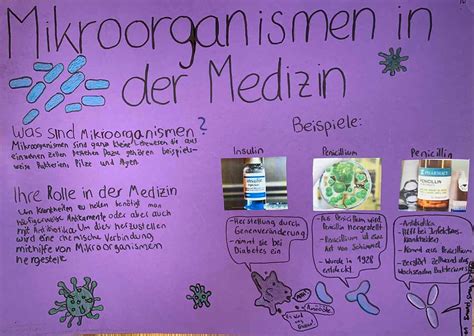 Mikroorganismen in
der Medizin
Was sind Mikroorganismen?
Mikroorganismen sind ganz kleine Lebewesen die aus
einzelnen Zellen bestehen Dazu gehören beispiels-
weise Bakterien Pilze und Algen
Ihre Rolle in der Medizin
Um Krankheiten zu heilen benötigt man
häufigerweise Antikamente oder aber auch
mit Antibiotika. Um dies herzustellen
wird eine chemische Verbindung
mithilfe von Mikroorganismen
hergestellt.
Beispiele:
Insulin
- Herstellung durch
Genveränderung
- nimmt sie bei
Diabetes ein
Penicillium
- Aus Penicillium wird
Penicillin Hergestellt
- Penicillium ist eine
Art von Schimmel
- Wurde in 1928
entdeckt
Penicillin
PENICILLIN
- Antibiotika
- Hilft bei Infektions-
krankheiten
- Kommt aus Penicillium
- Zerstört Zellwand der
Wachsenden Bakterien